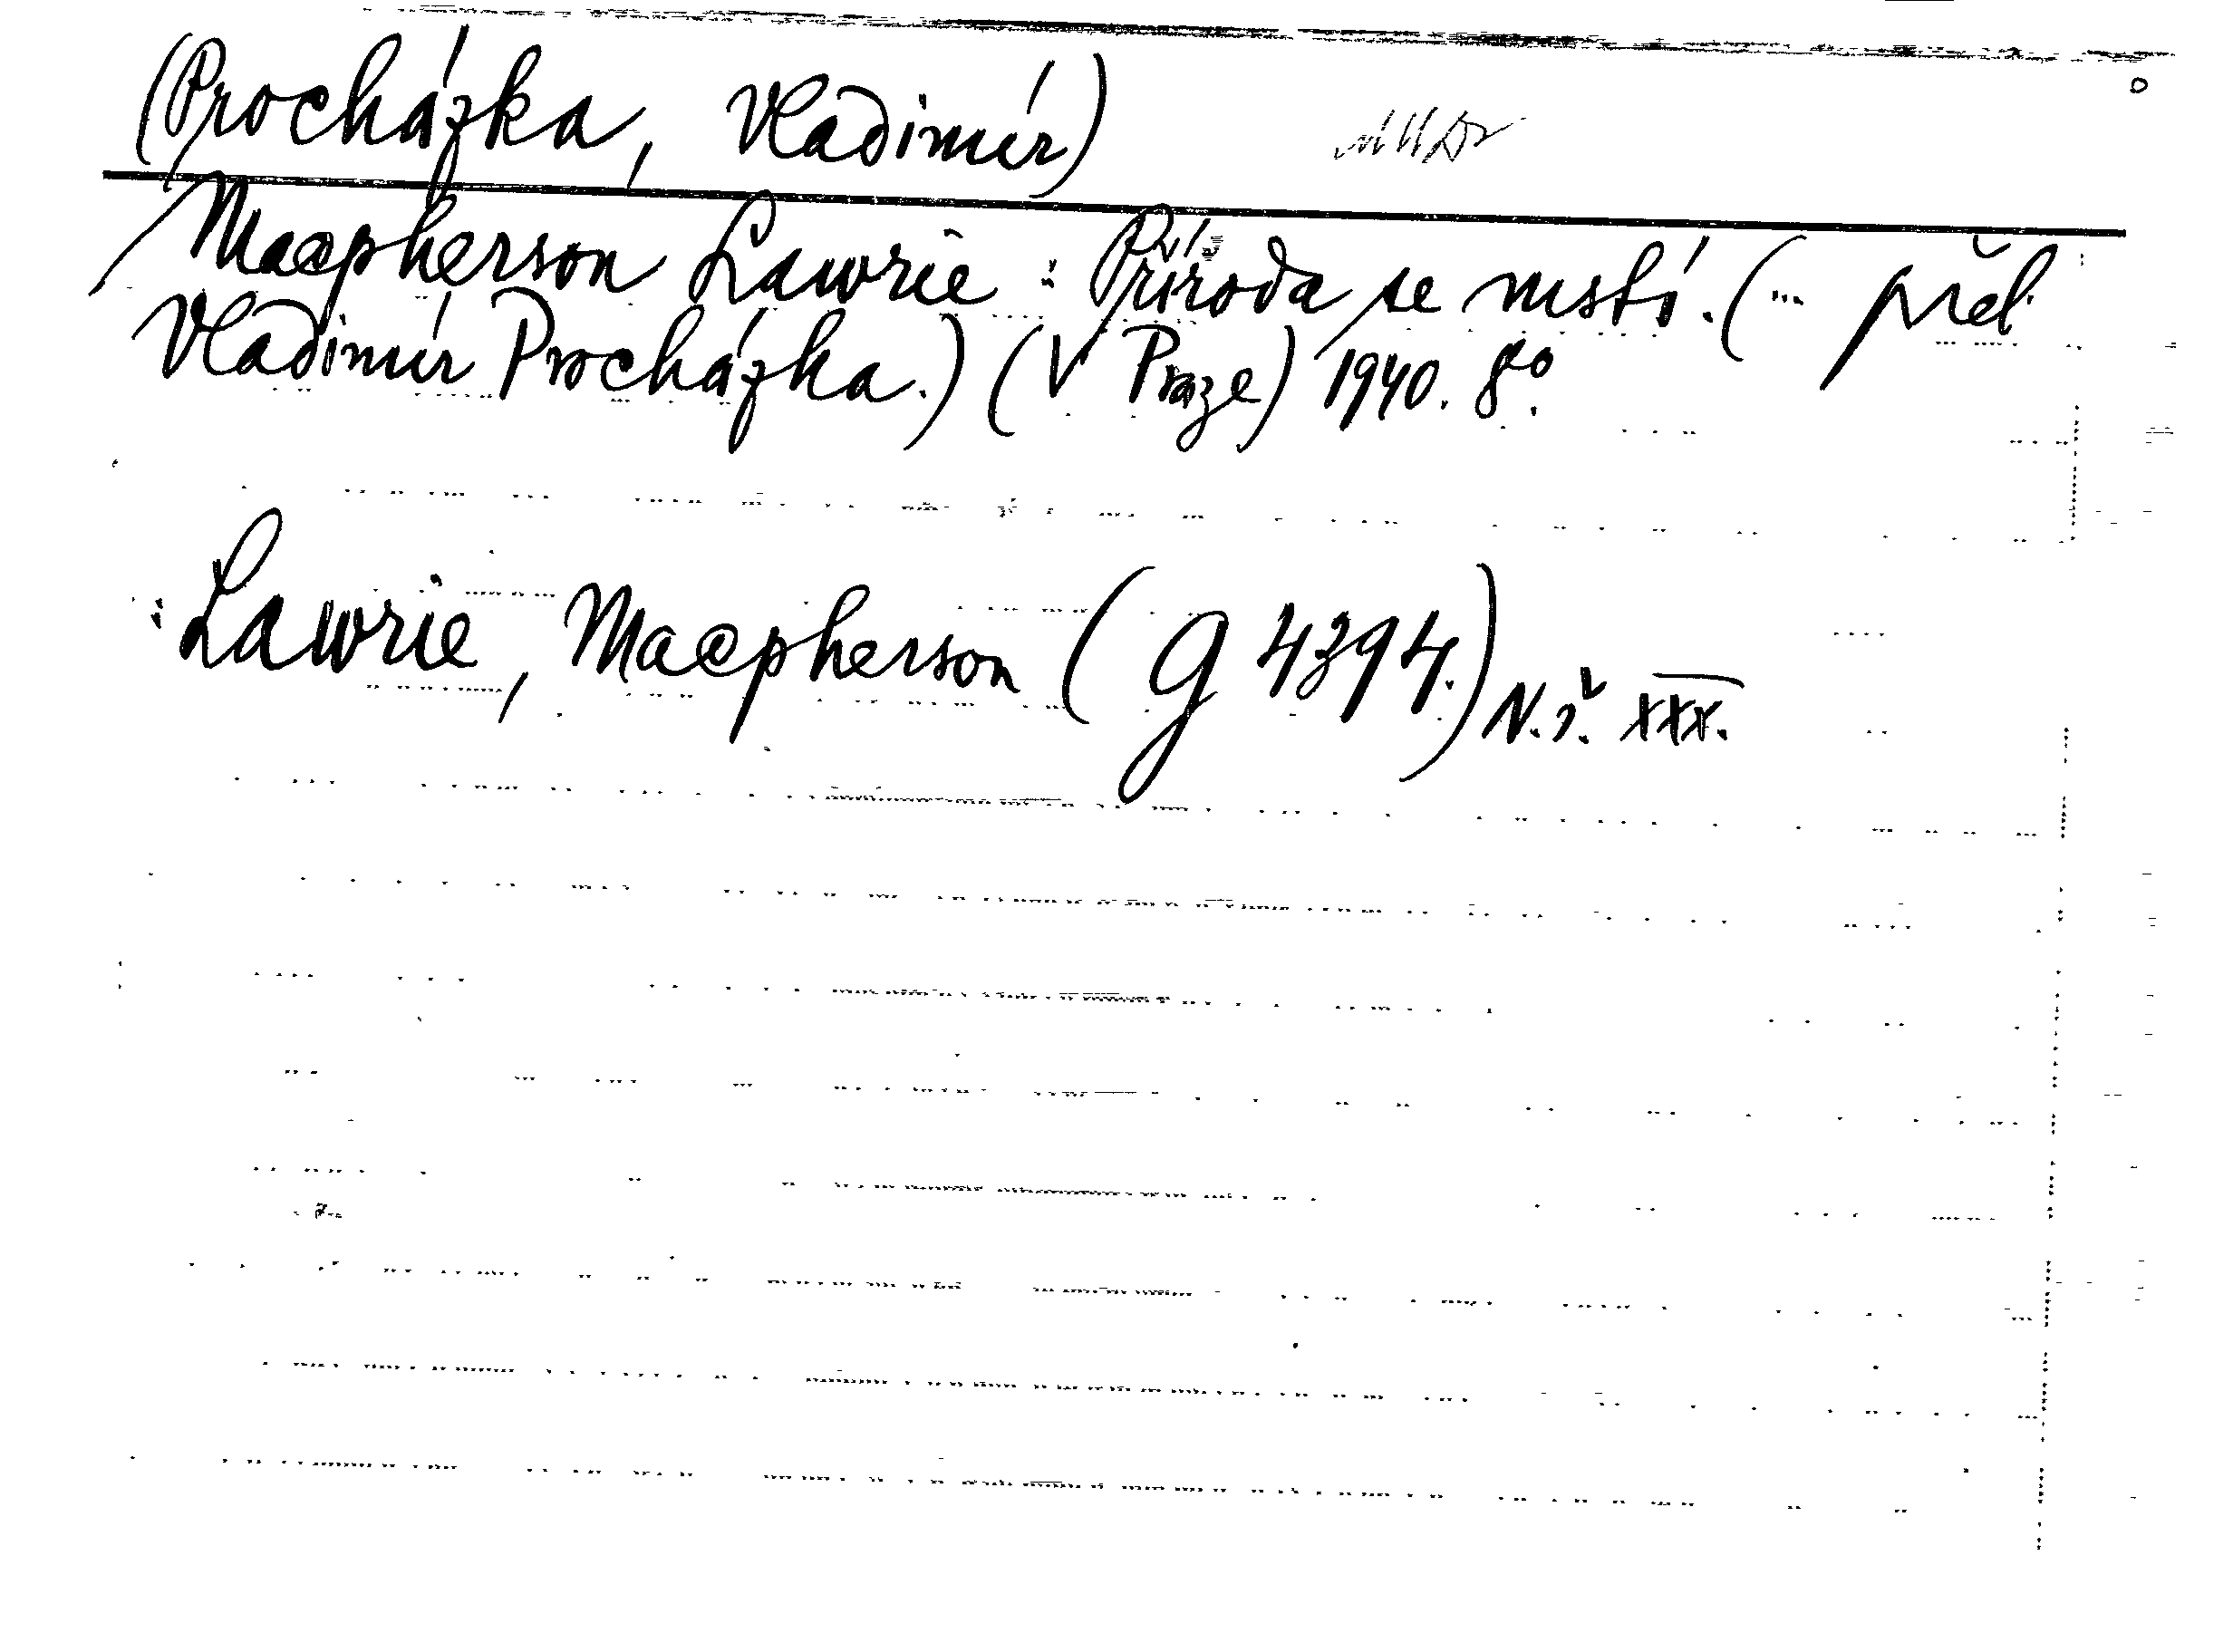 (Procházka, Vladimír)
Macpherson Lawrie: Příroda se mstí. (... přel.
Vladimír Procházka.) (V Praze) 1940. 8º.
Lawrie, Macpherson (G 4394.) N.ř. XXX.